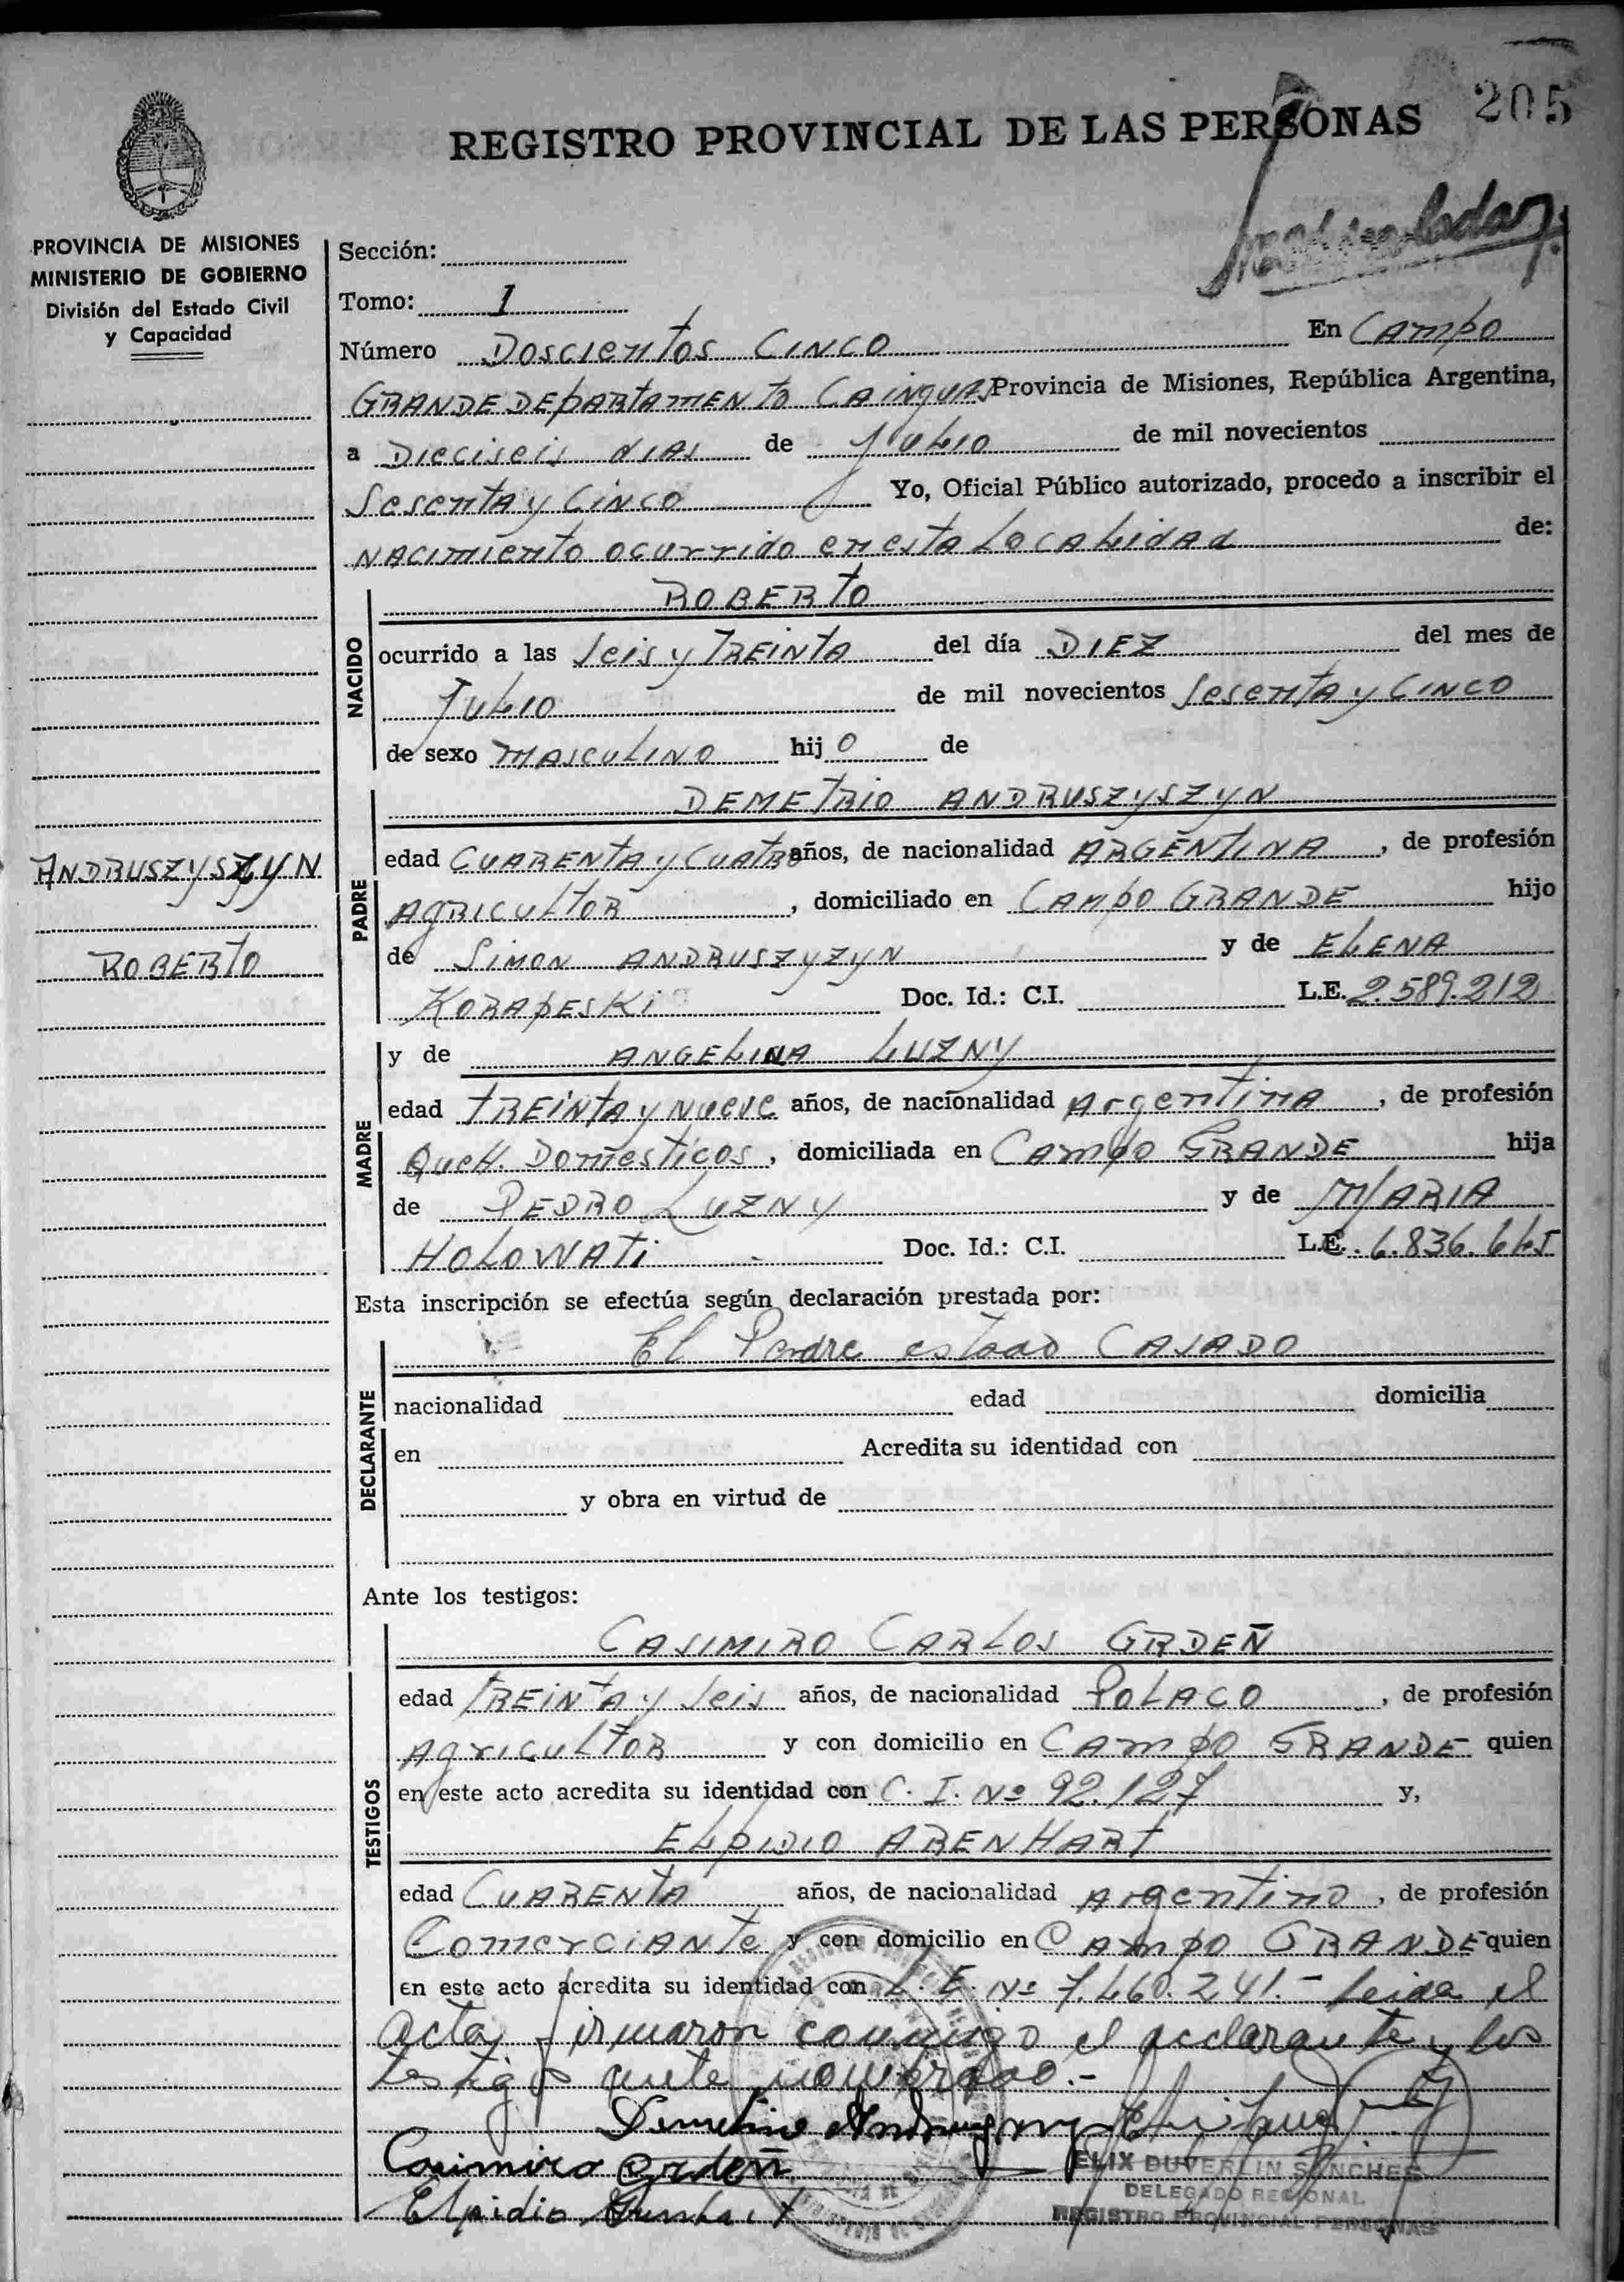 205
REGISTRO PROVINCIAL DE LAS PERSONAS
PROVINCIA DE MISIONES
MINISTERIO DE GOBIERNO
División del Estado Civil
y Capacidad
ANDRUSZYSZYN
ROBERTO
Sección:
Tomo: 1
Número DOSCIENTOS CINCO En CAMPO
GRANDE DEPARTAMENTO CAINGUAS Provincia de Misiones, República Argentina,
a DIECISEIS DIAS de JULIO de mil novecientos
SESENTA y CINCO Yo, Oficial Público autorizado, procedo a inscribir el
NACIMIENTO OCURRIDO EN ESTA LOCALIDAD de:
NACIDO
ROBERTO
ocurrido a las SEIS y TREINTA del día DIEZ del mes de
JULIO de mil novecientos SESENTA y CINCO
de sexo MASCULINO hijO de
PADRE
DEMETRIO ANDRUSZYSZYN
edad CUARENTA y CUATRO años, de nacionalidad ARGENTINA, de profesión
AGRICULTOR, domiciliado en CAMPO GRANDE hijo
de SIMON ANDRUSZYZYN y de ELENA
KORAPESKI Doc. Id.: C.I. L.E. 2.589.212
MADRE
y de ANGELINA LUZNY
edad TREINTA y NUEVE años, de nacionalidad ARGENTINA, de profesión
QUEH. DOMESTICOS, domiciliada en CAMPO GRANDE hija
de PEDRO LUZNY y de MARIA
HOLOWATI Doc. Id.: C.I. L.E. 6.836.645
Esta inscripción se efectúa según declaración prestada por:
DECLARANTE
El Padre estado CASADO
nacionalidad edad domicilia
en Acredita su identidad con
y obra en virtud de
Ante los testigos:
TESTIGOS
CASIMIRO CARLOS GRDEÑ
edad TREINTA y SEIS años, de nacionalidad POLACO, de profesión
AGRICULTOR y con domicilio en CAMPO GRANDE quien
en este acto acredita su identidad con C. I. Nº 92.127 y,
ELPIDIO ARENHART
edad CUARENTA años, de nacionalidad ARGENTINO, de profesión
COMERCIANTE y con domicilio en CAMPO GRANDE quien
en este acto acredita su identidad con L. E. Nº 7.460.241.- Leida el
acta, firmaron conmigo el declarante y los
testigos ante nombrado.-
Casimiro Grdeñ
Elpidio Arenhart
ELIX DUVERLIN SANCHES
DELEGADO REGIONAL
REGISTRO PROVINCIAL PERSONAS